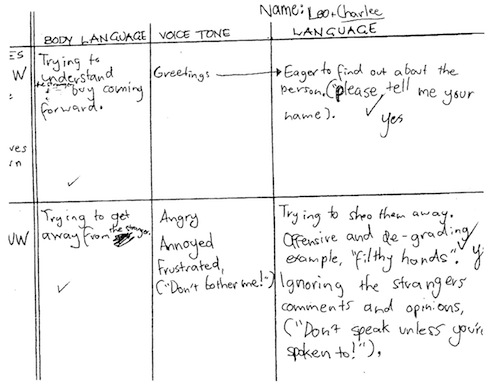 Name: Leo + Charlee
BODY LANGUAGE
VOICE TONE
LANGUAGE
ES
W
ves
rn
Trying to
understand
buy coming
forward.
Greetings
Eager to find out about the
person. ("please tell me your
name).
yes
UW
Trying to get
away from the stranger.
Angry
Annoyed
Frustrated,
("Don't bother me!")
Trying to shoo them away.
Offensive and De-grading
example, "filthy hands".
Ignoring the strangers
comments and opinions,
("Don't speak unless you're
spoken to!"),